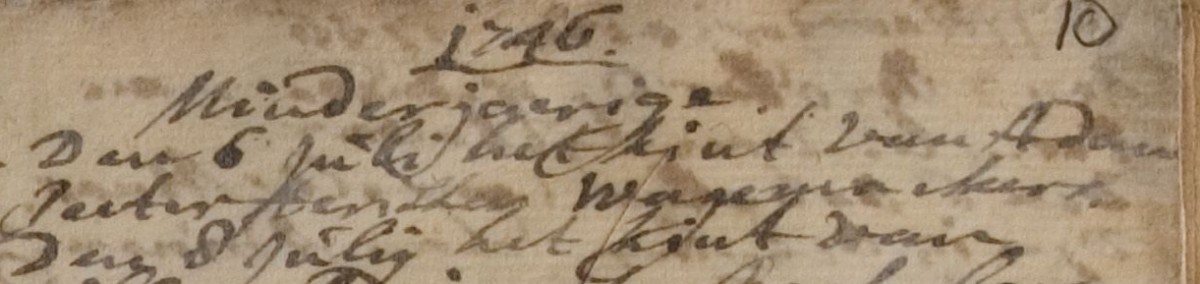 10
1746.
Minderjaerige
Den 6 Julij het kint van Adam
Peeter Wagemackers
Den 8 Julij het kint van